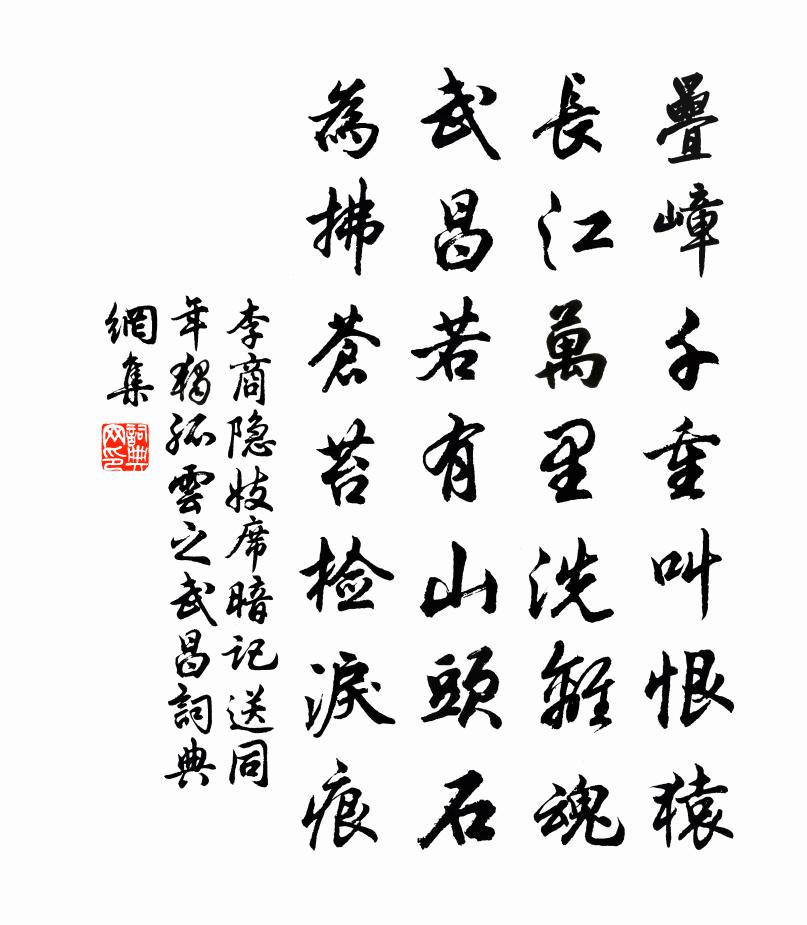 疊嶂千重叫恨猿
長江萬里洗離魂
武昌若有山頭石
為拂蒼苔檢淚痕
李商隐妓席暗记送同
年獨孤雲之武昌詞典
網集
詞典網印